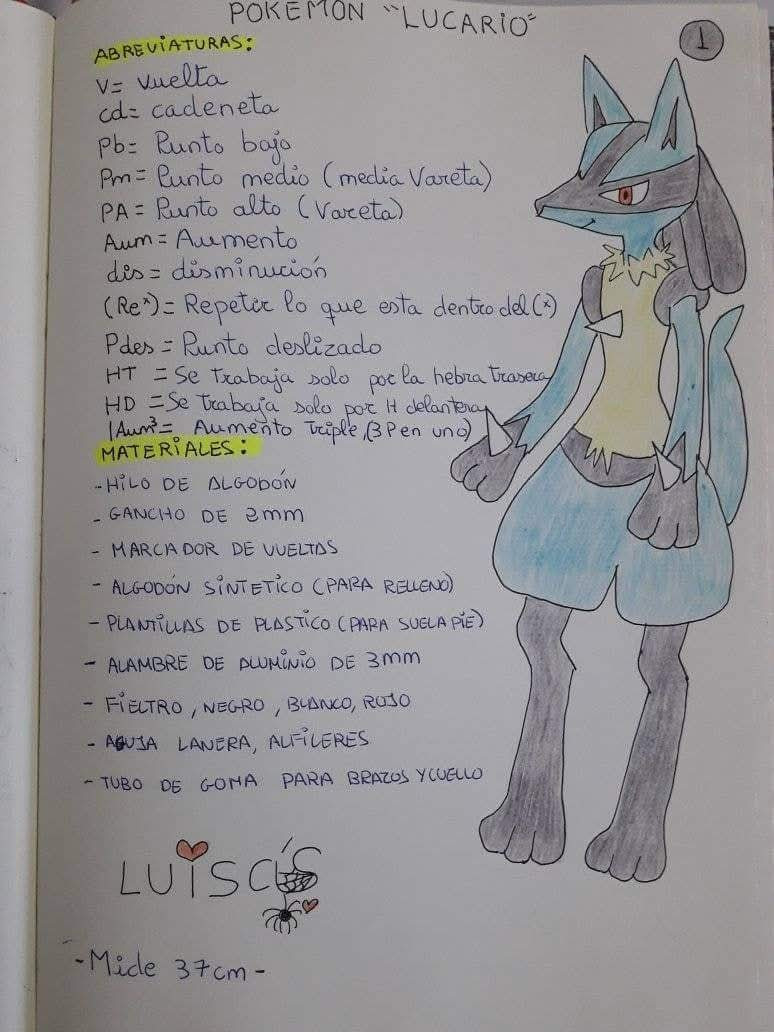 POKEMON "LUCARIO"
1
ABREVIATURAS:
V= Vuelta
cd= cadeneta
Pb= Punto bajo
Pm= Punto medio (media Vareta)
PA= Punto alto (Vareta)
Aum= Aumento
dis= disminución
(Re*)= Repetir lo que esta dentro del (*)
Pdes= Punto deslizado
HT = Se trabaja solo por la hebra trasera
HD = Se trabaja solo por H delantera
1Aum³= Aumento Triple, (3 P en uno)
MATERIALES:
- HILO DE ALGODÓN
- GANCHO DE 2mm
- MARCADOR DE VUELTAS
- ALGODÓN SINTETICO (PARA RELLENO)
- PLANTILLAS DE PLASTICO (PARA SUELA PIE)
- ALAMBRE DE ALUMINIO DE 3mm
- FIELTRO, NEGRO, BLANCO, ROJO
- AGUJA LANERA, ALFILERES
- TUBO DE GOMA PARA BRAZOS Y CUELLO
-Mide 37cm-